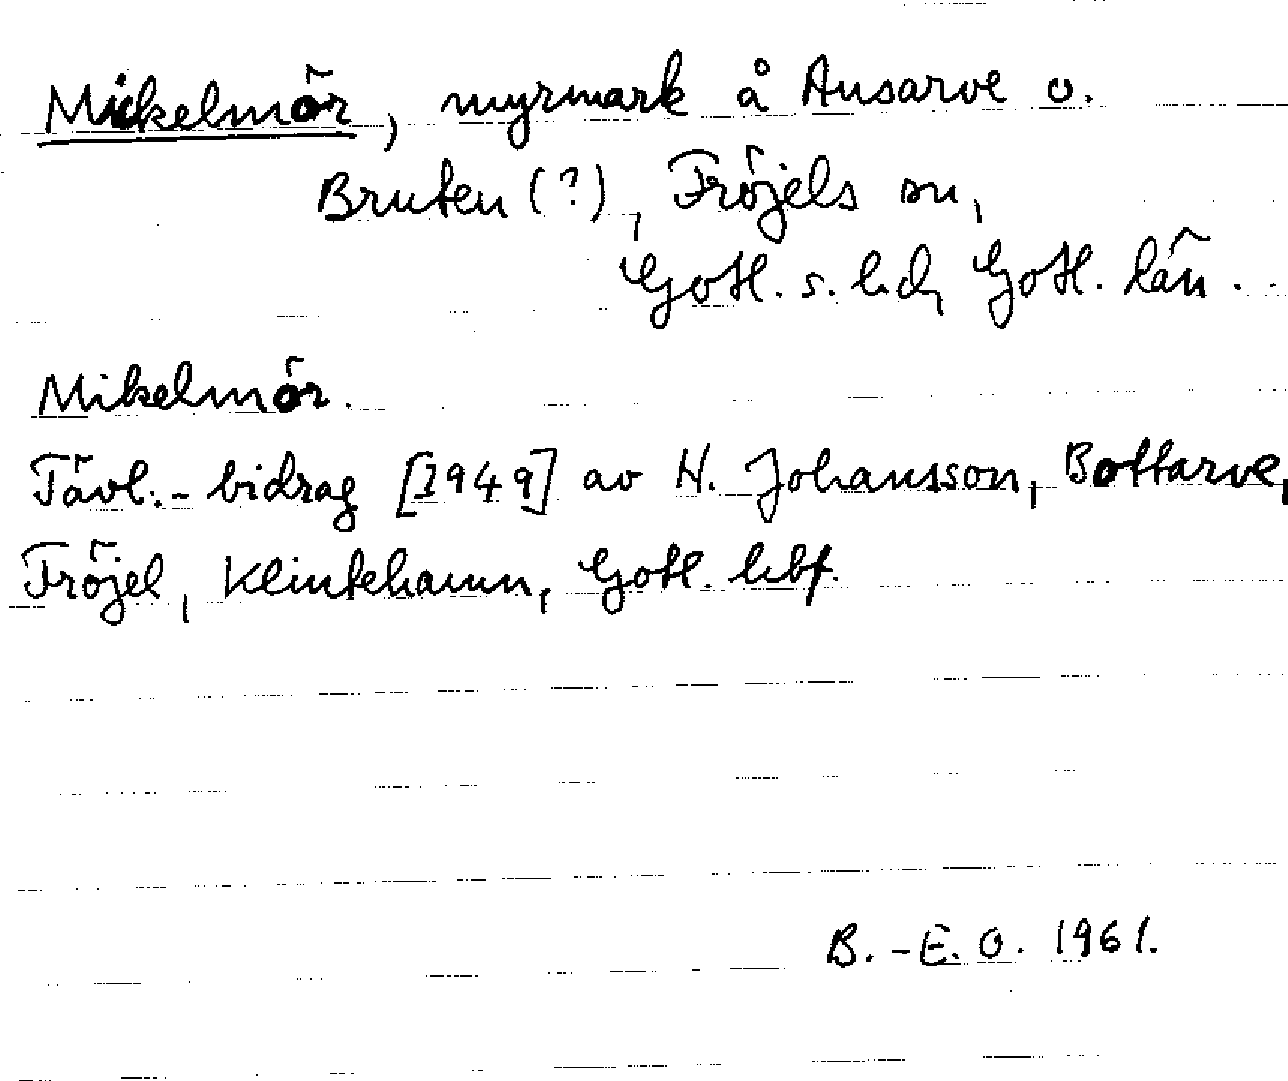 Mickelmör, myrmark å Ansarve o.
Bruten (?), Fröjels sn,
Gotl. s. hd, Gotl. län.
Mikelmör.
Tävl.-bidrag [1949] av H. Johansson, Bottarve,
Fröjel, Klintehamn, Gotl. hbf.
B.-E. O. 1961.